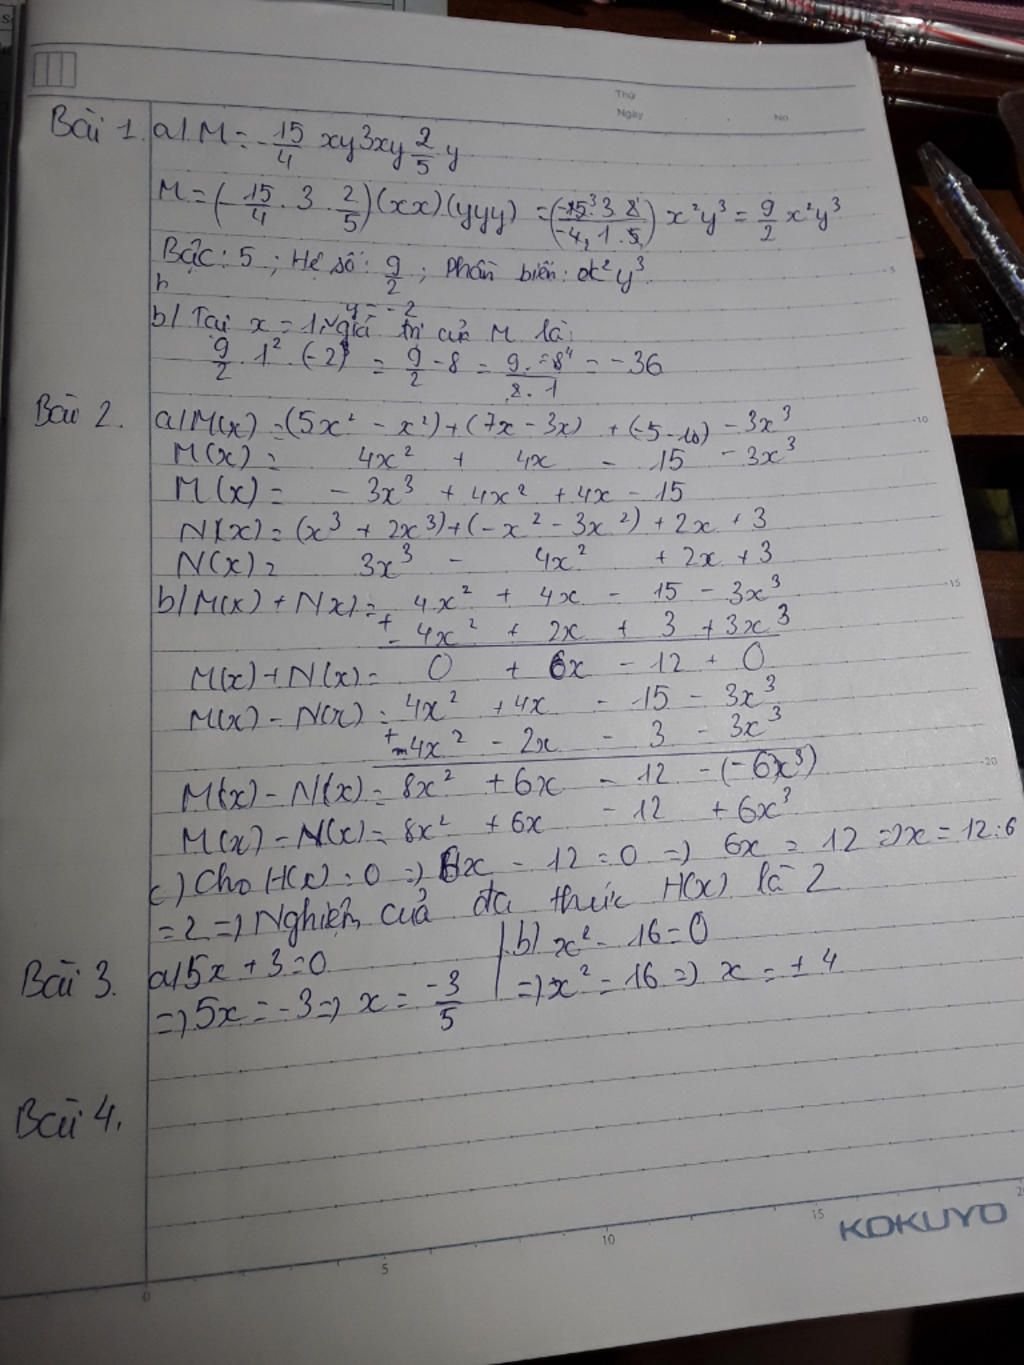 Thứ
Ngày . . No
Bài 1. a/. M = -15/4 xy3xy 2/5 y
M = (-15/4 . 3 . 2/5)(xx)(yyy) = x²y³ = 9/2 x²y³
Bậc: 5 ; Hệ số: 9/2 ; Phần biến: x²y³
b/ Tại x = 1 y = -2 giá trị của M là:
9/2 . 1² . (-2)³ = 9/2 - 8 = 9.-8/2.1 = -36
Bài 2. a/ M(x) = (5x² - x²) + (7x - 3x) + (-5-10) - 3x³
M(x) = 4x² + 4x - 15 - 3x³
M(x) = - 3x³ + 4x² + 4x - 15
N(x) = (x³ + 2x³) + (-x² - 3x²) + 2x + 3
N(x) = 3x³ - 4x² + 2x + 3
b/ M(x) + N(x) = 4x² + 4x - 15 - 3x³
+ - 4x² + 2x + 3 + 3x³
M(x) + N(x) = 0 + 6x - 12 + 0
M(x) - N(x) = 4x² + 4x - 15 - 3x³
+ 4x² - 2x - 3 - 3x³
M(x) - N(x) = 8x² + 6x - 12 - (-6x³)
M(x) - N(x) = 8x² + 6x - 12 + 6x³
c) Cho H(x) = 0 => 6x - 12 = 0 => 6x = 12 => x = 12:6
= 2 => Nghiệm của đa thức H(x) là 2
Bài 3. a/ 5x + 3 = 0
=> 5x = -3 => x = -3/5
b/ x² - 16 = 0
=> x² = 16 => x = ± 4
Bài 4.
KOKUYO